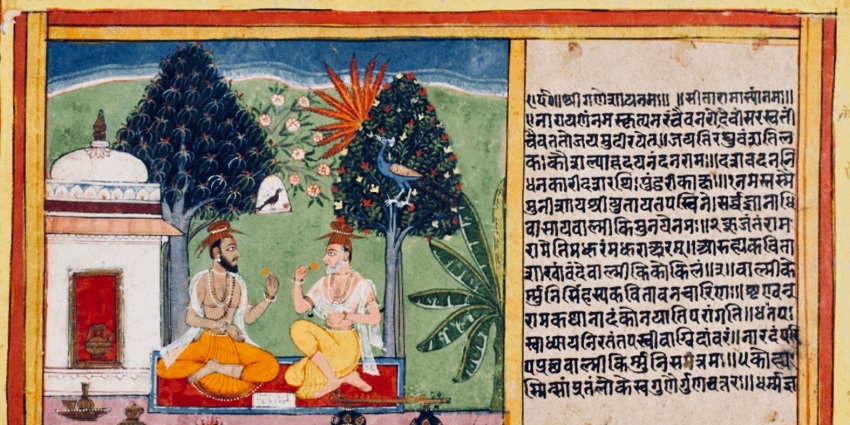 ॥श्रीगणेशायनमः॥ ॥सीतारामाभ्यांनमः॥
नारायणंनमस्कृत्यनरंचैवनरोत्तमंदेवींसरस्वतीं
चैवततोजयमुदीरयेत्॥जयतिरघुवंशतिल
कःकौशल्याहृदयनंदनरामः॥दशवदननि
धनकारीदाशरथिःपुंडरीकाक्षः॥१नमस्तस्मै
मुनीशायश्रीयुतायतपस्विने।सर्वज्ञानाधि
वासायवाल्मीकिमुनयेनमः॥२कूजंतंराम
रामेतिमधुरंमधुराक्षरम्॥आरुह्यकविता
शाखांवंदेवाल्मीकिकोकिलं॥३॥वाल्मीके
र्मुनिसिंहस्यकवितावनचारिणः॥शृण्वन्
रामकथानादंकोनयातिपरांगतिं॥४तपः
स्वाध्यायनिरतंतपस्वीवाग्विदांवरं॥नारदंपरि
पप्रच्छवाल्मीकिर्मुनिसत्तमः॥५कोन्व
स्मिन्सांप्रतंलोकेस्वगुणैर्गुणवत्तरः॥धर्मज्ञ